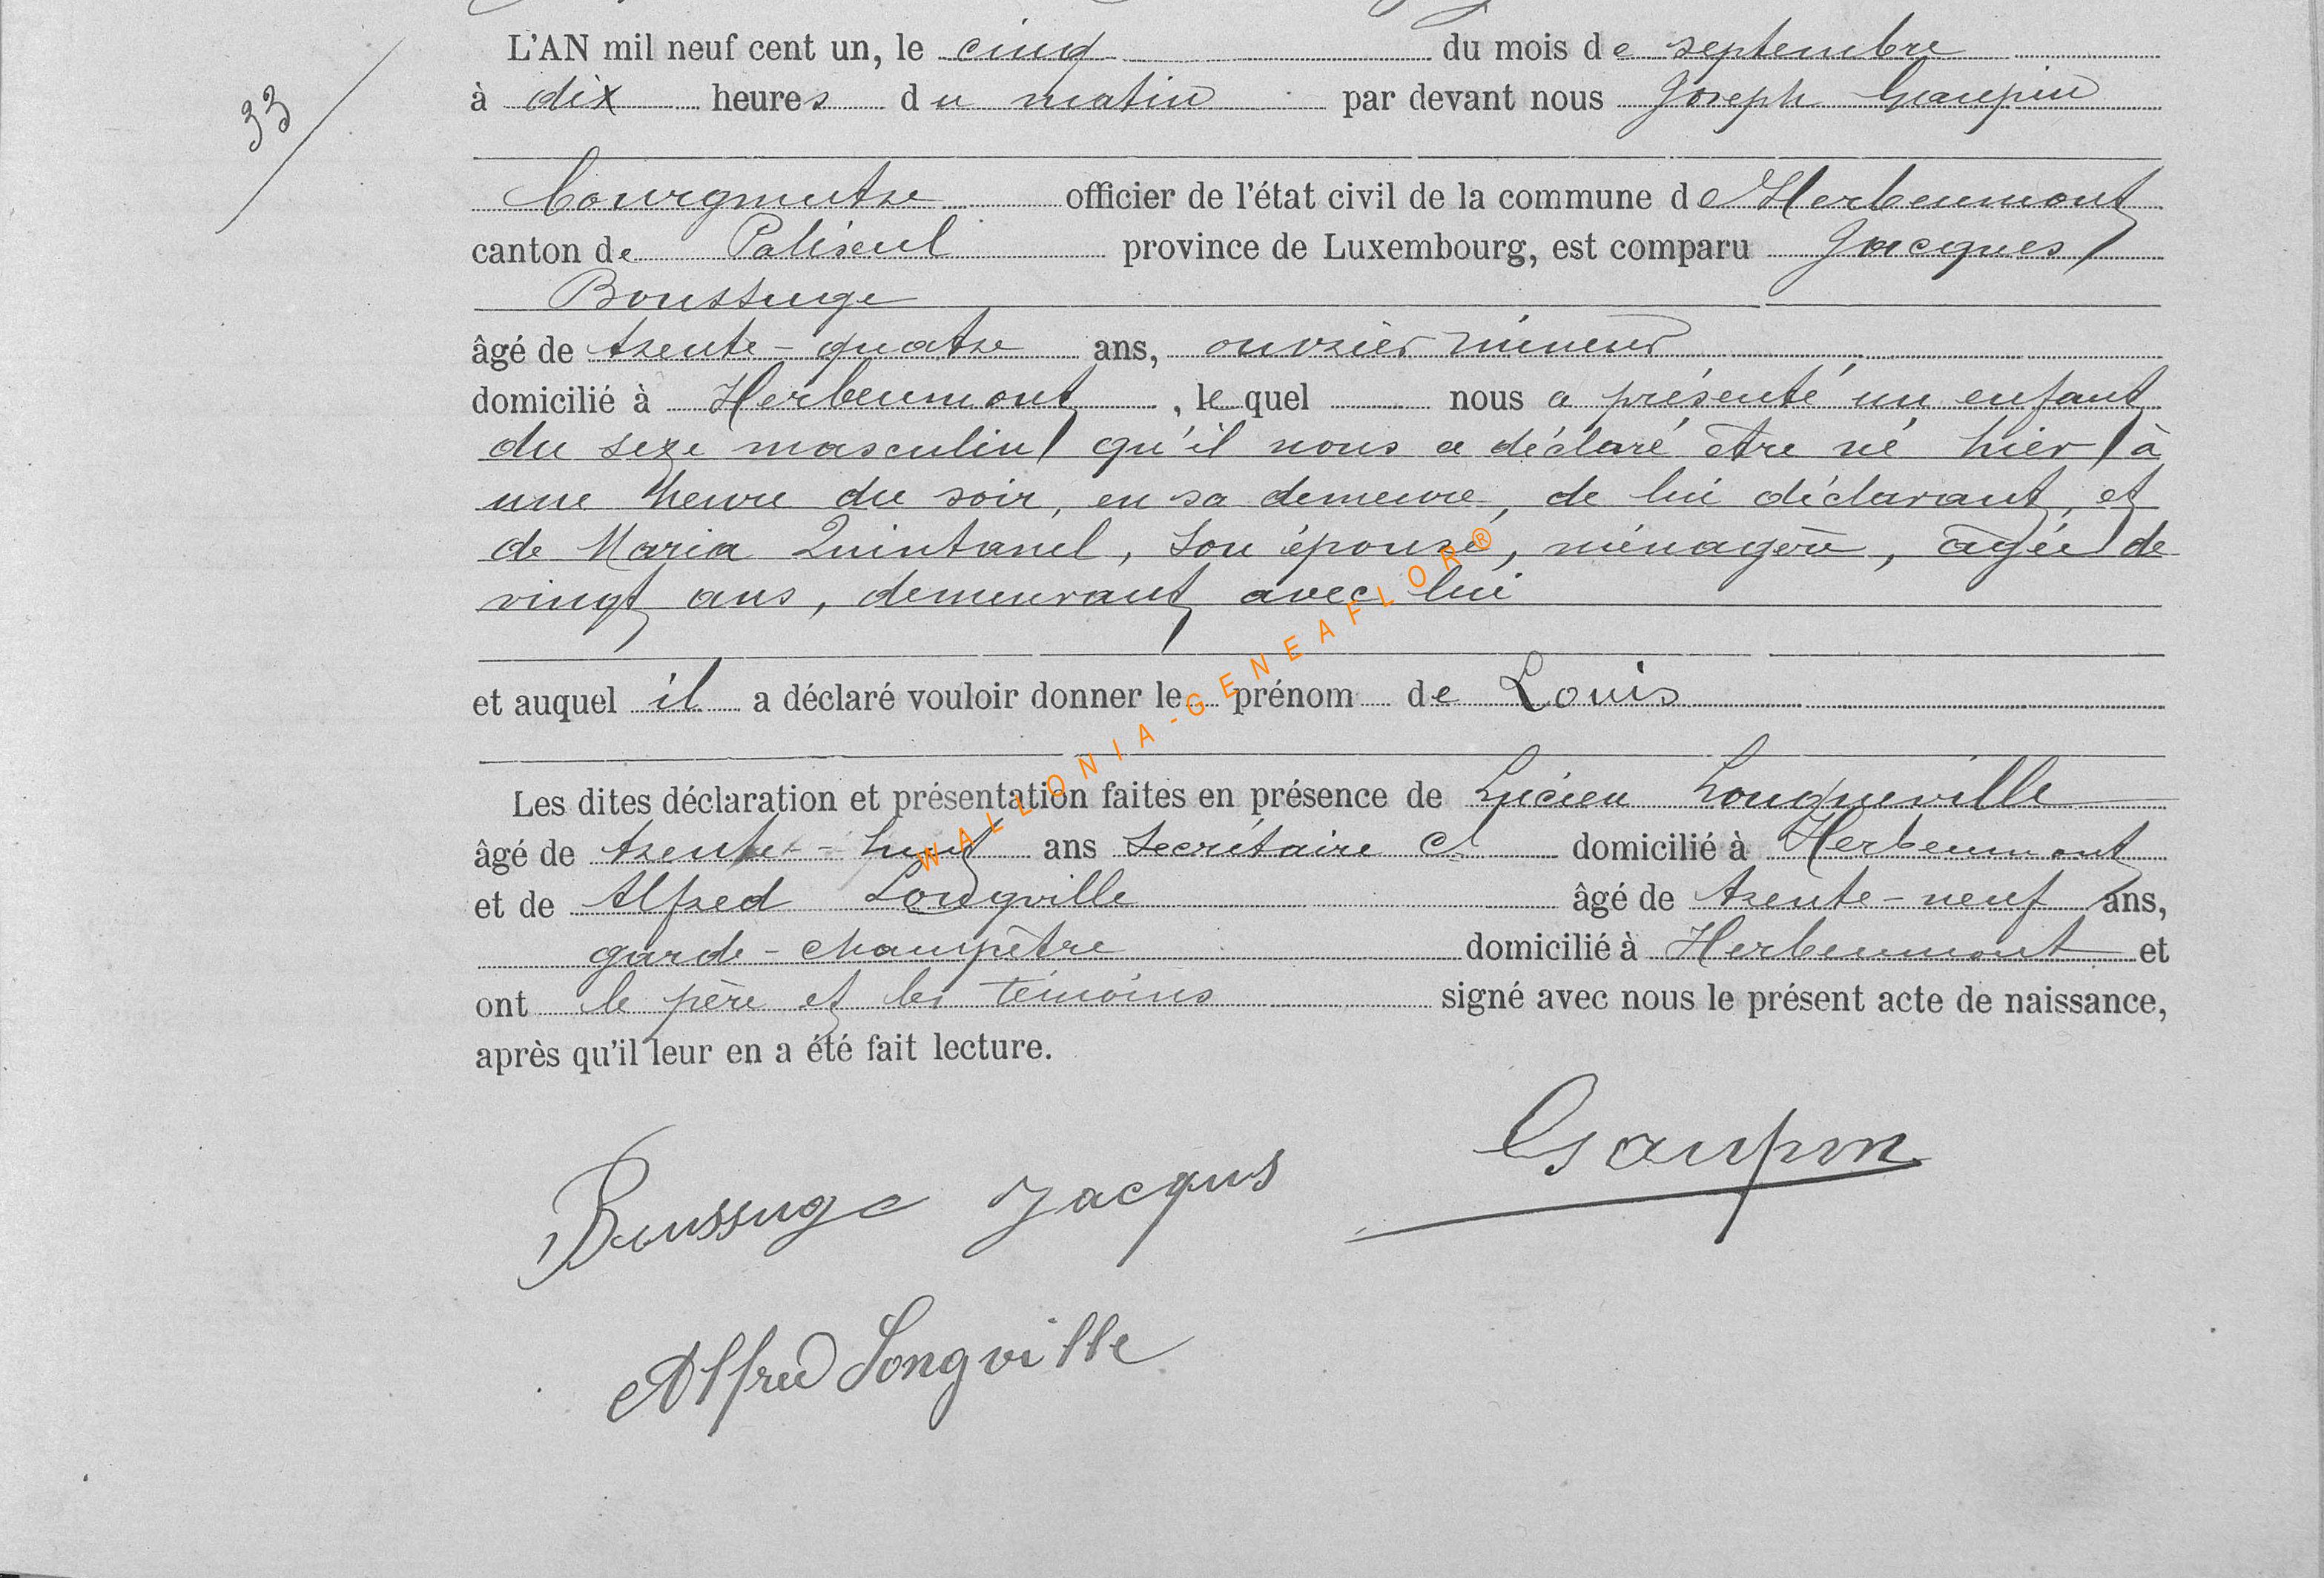 33
L'AN mil neuf cent un, le cinq du mois de septembre
à dix heures du matin par devant nous Joseph Gaupin
bourgmestre officier de l'état civil de la commune de Herbeumont
canton de Paliseul province de Luxembourg, est comparu Jacques
Boussuge
âgé de trente-quatre ans, ouvrier mineur
domicilié à Herbeumont, lequel nous a présenté un enfant
du sexe masculin qu'il nous a déclaré être né hier à
une heure du soir, en sa demeure, de lui déclarant, et
de Maria Quintanel, son épouse, ménagère, âgée de
vingt ans, demeurant avec lui
et auquel il a déclaré vouloir donner le prénom de Louis
Les dites déclaration et présentation faites en présence de Lucien Longueville
âgé de trente-huit ans secrétaire cl domicilié à Herbeumont
et de Alfred Longville âgé de trente-neuf ans,
garde-champêtre domicilié à Herbeumont et
ont le père et les témoins signé avec nous le présent acte de naissance,
après qu'il leur en a été fait lecture.
Gaupin
Boussuge Jacqus
Alfred Longville
WALLONIA-GENEAFLOR®